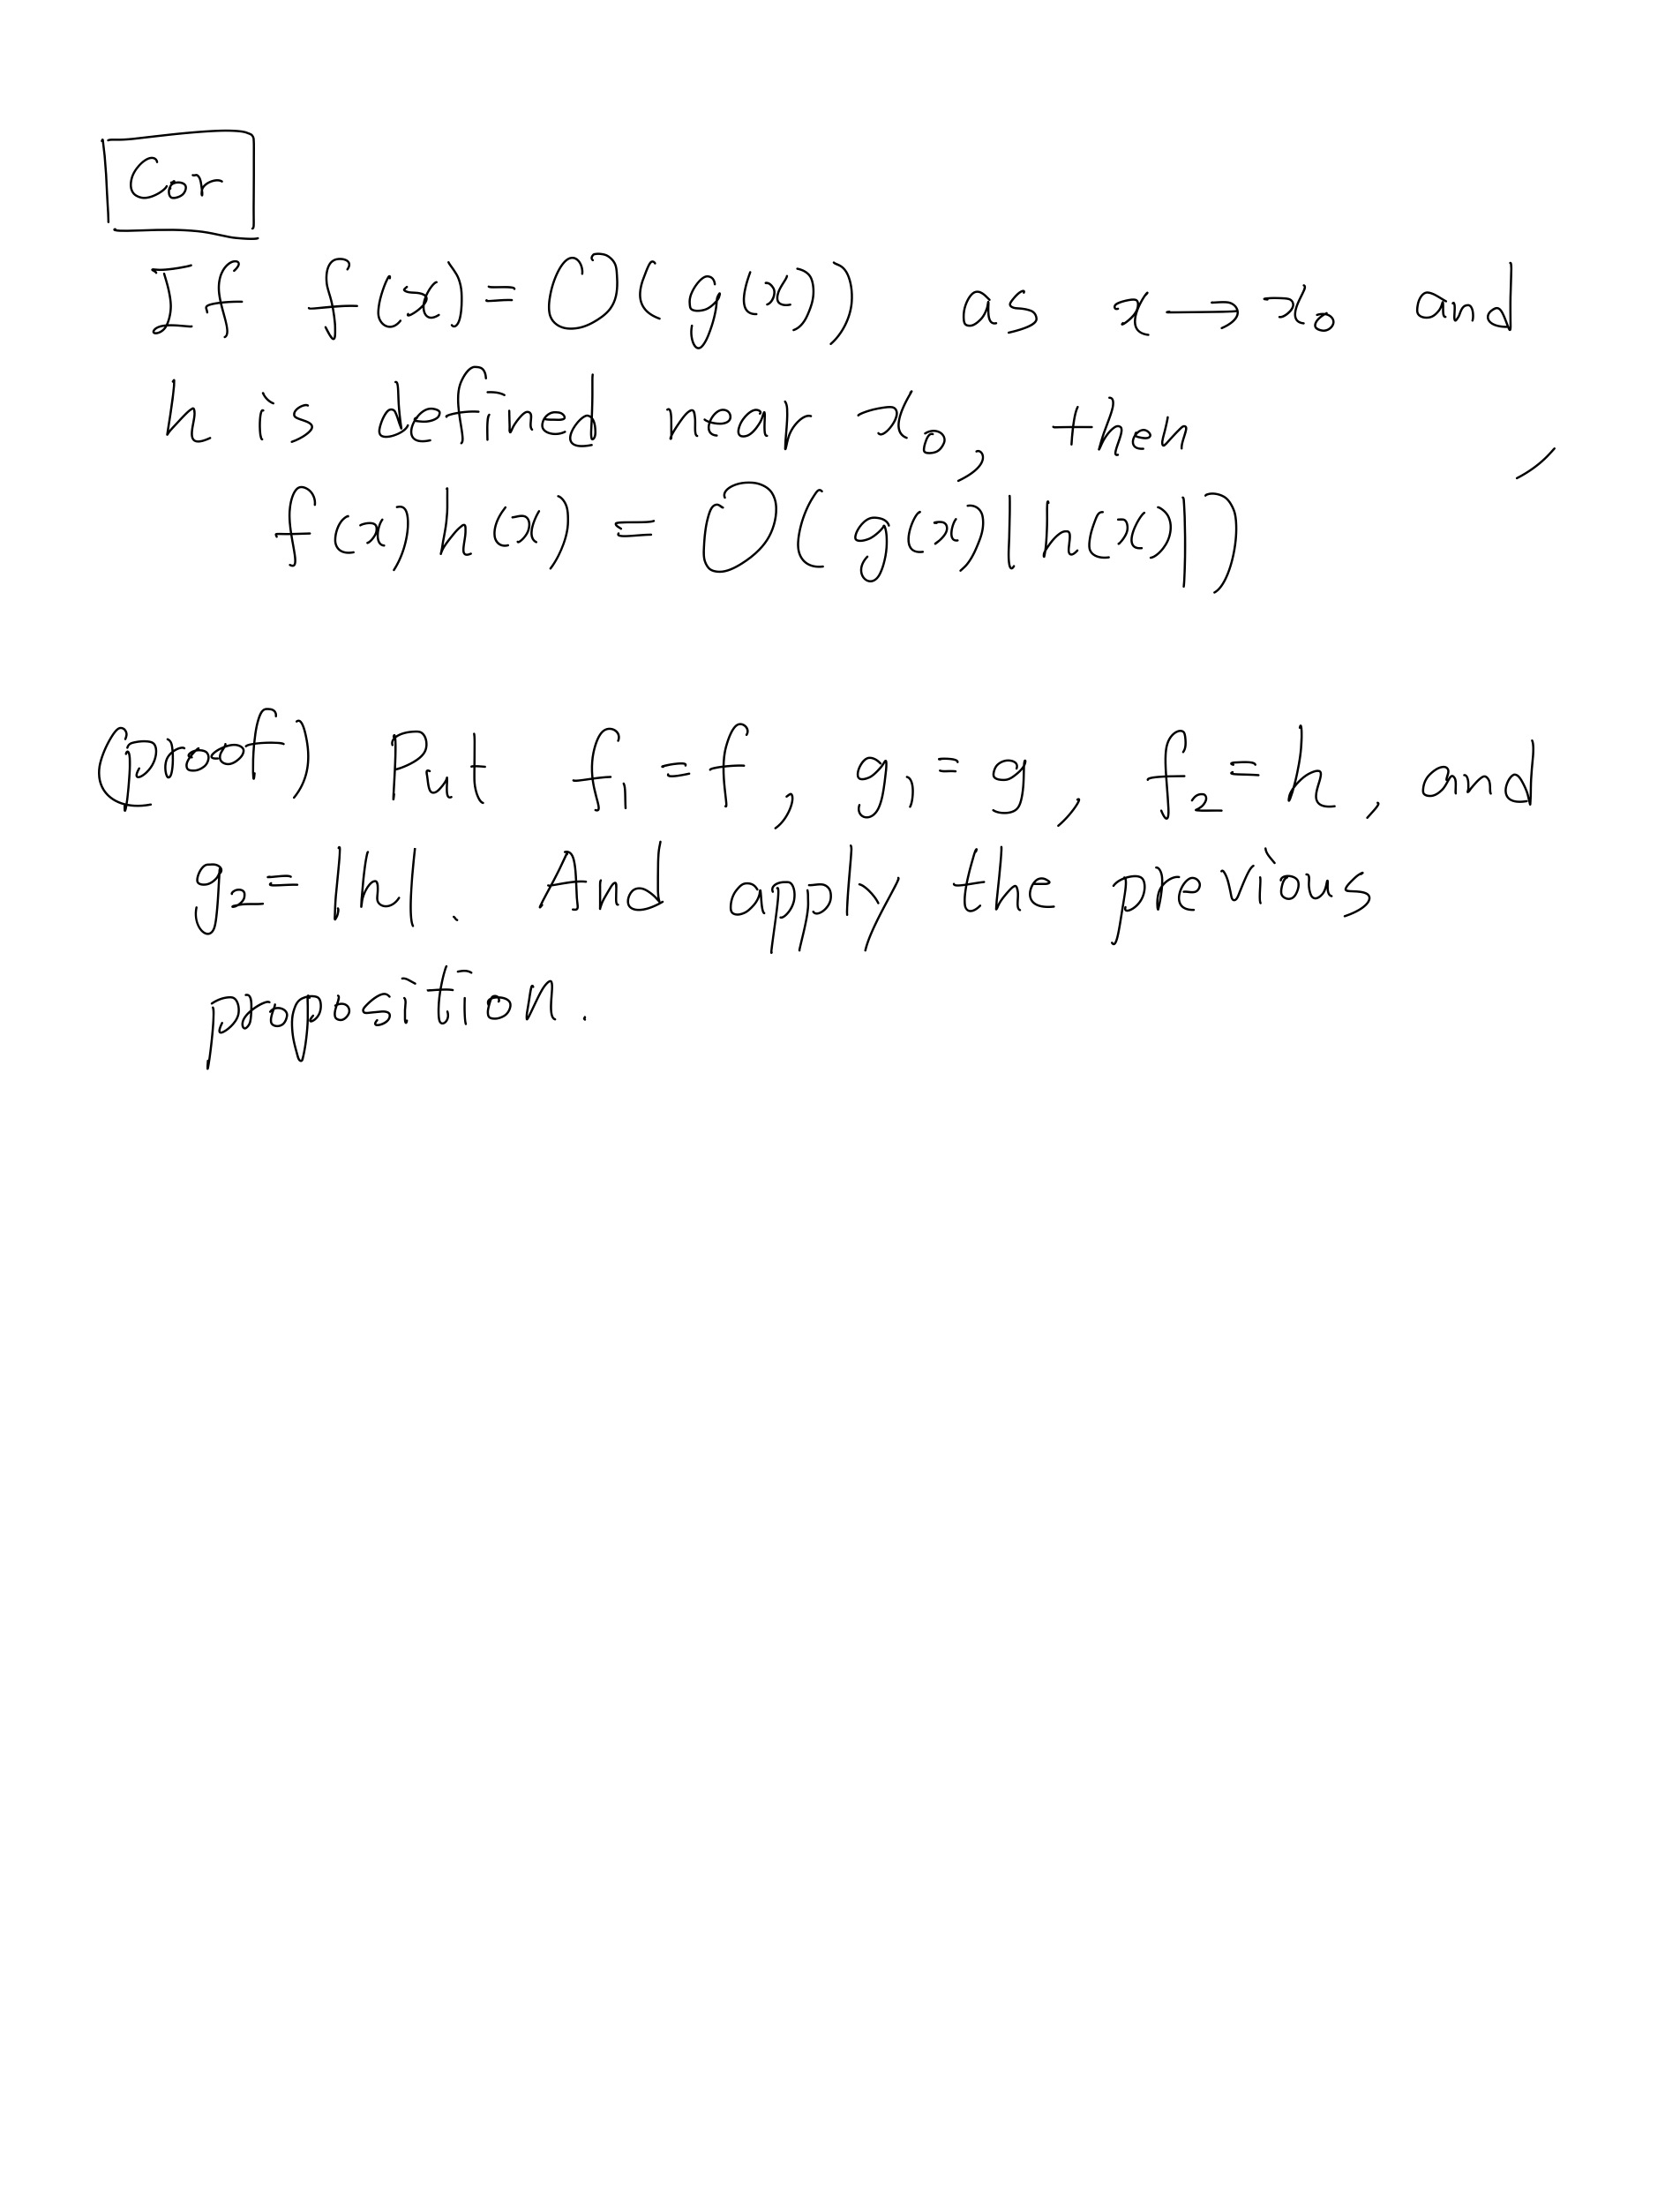 Cor
If f(x) = O(g(x)) as x → x₀ and
h is defined near x₀, then ,
f(x)h(x) = O(g(x)|h(x)|)
(proof) Put f₁ = f, g₁ = g, f₂ = h, and
g₂ = |h|. And apply the previous
proposition.